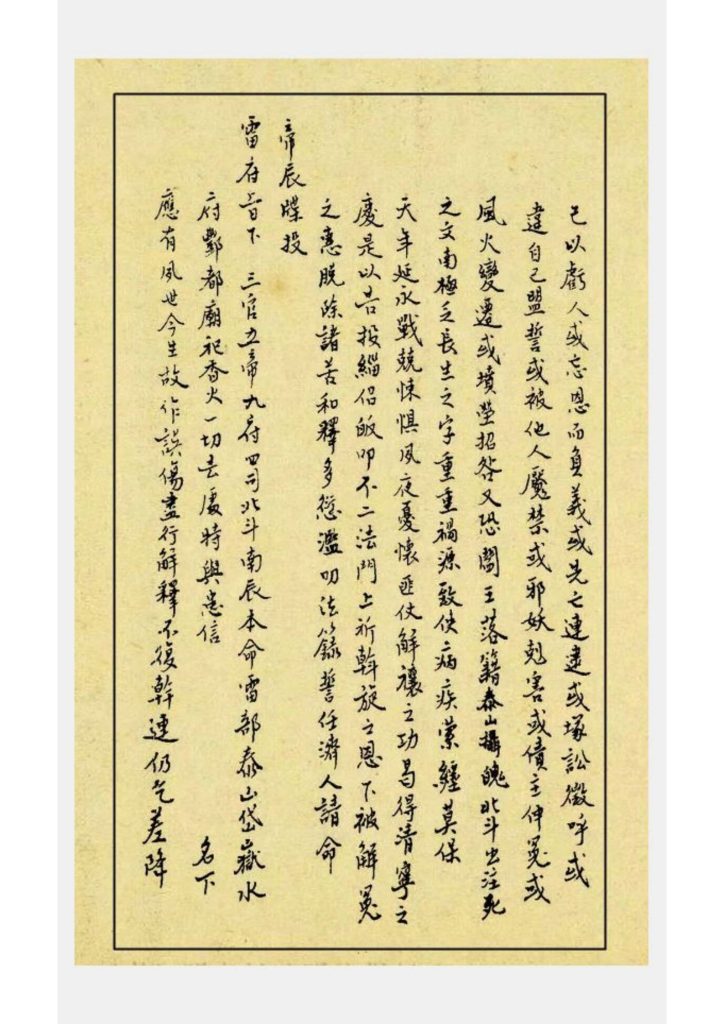 己以虧人或忘恩而負義或先亡連逮或塚訟徵呼或
違自己盟誓或被他人魘禁或邪妖剋害或債主伸冤或
風火變遷或墳塋招咎又恐閻王落籍泰山攝魄北斗出注死
之文南極乏長生之字重重禍源致使病疾縈纏莫保
天年延永戰兢悚惧夙夜憂懷匪仗解禳之功曷得清寧之
慶是以告投緇侶皈叩不二法門上祈斡旋之恩下被解冤
之惠脱除諸苦和釋多愆濫叨法籙誓任濟人請命
帝辰牒投
雷府旨下 三官五帝九府四司北斗南辰本命雷部泰山岱嶽水
府酆都廟祀香火一切去處時與患信 名下
應有夙世今生故作誤傷盡行解釋不復幹連仍乞差降